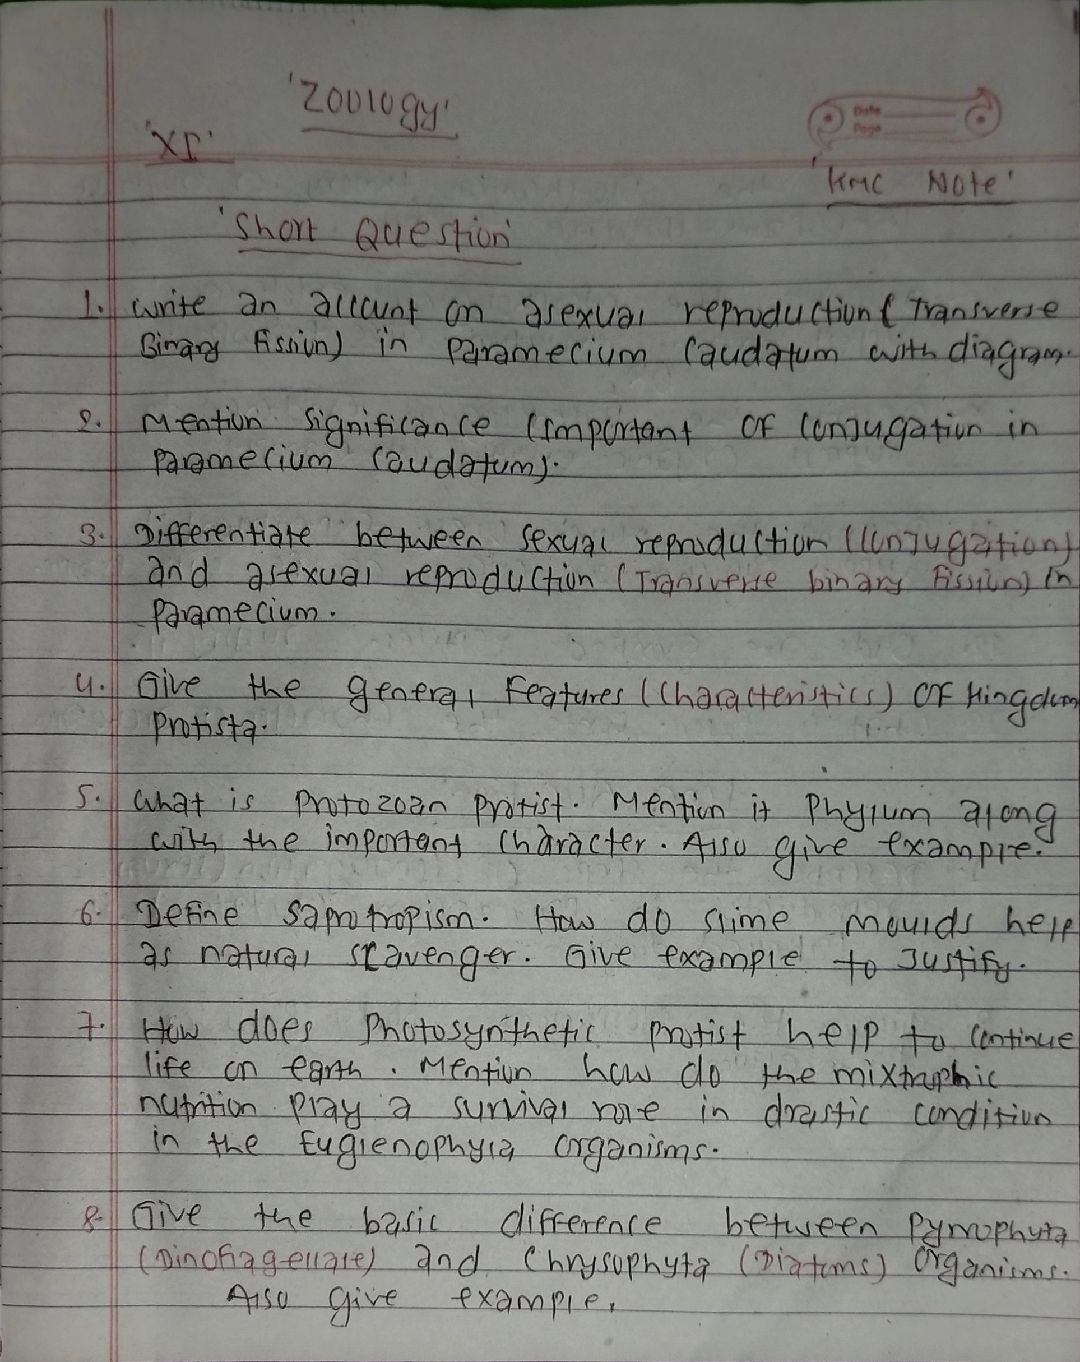 'Zoology'
'XI'
Date
Page
'KMC Note'
'Short Question'
1. Write an account on asexual reproduction (Transverse
Binary fission) in Paramecium Caudatum with diagram.
2. Mention significance (Important of conjugation in
Paramecium Caudatum).
3. Differentiate between sexual reproduction (Conjugation)
and asexual reproduction (Transverse binary fission) in
Paramecium.
4. Give the general features (Characteristics) of Kingdom
Protista.
5. What is protozoan protist. Mention it Phylum along
with the important character. Also give example.
6. Define saprotropism. How do slime moulds help
as natural scavenger. Give example to Justify.
7. How does Photosynthetic protist help to continue
life on earth. Mention how do the mixtrophic
nutrition play a survival role in drastic condition
in the Euglenophyta organisms.
8. Give the basic difference between Pyrrophyta
(Dinoflagellate) and Chrysophyta (Diatoms) Organisms.
Also give example.